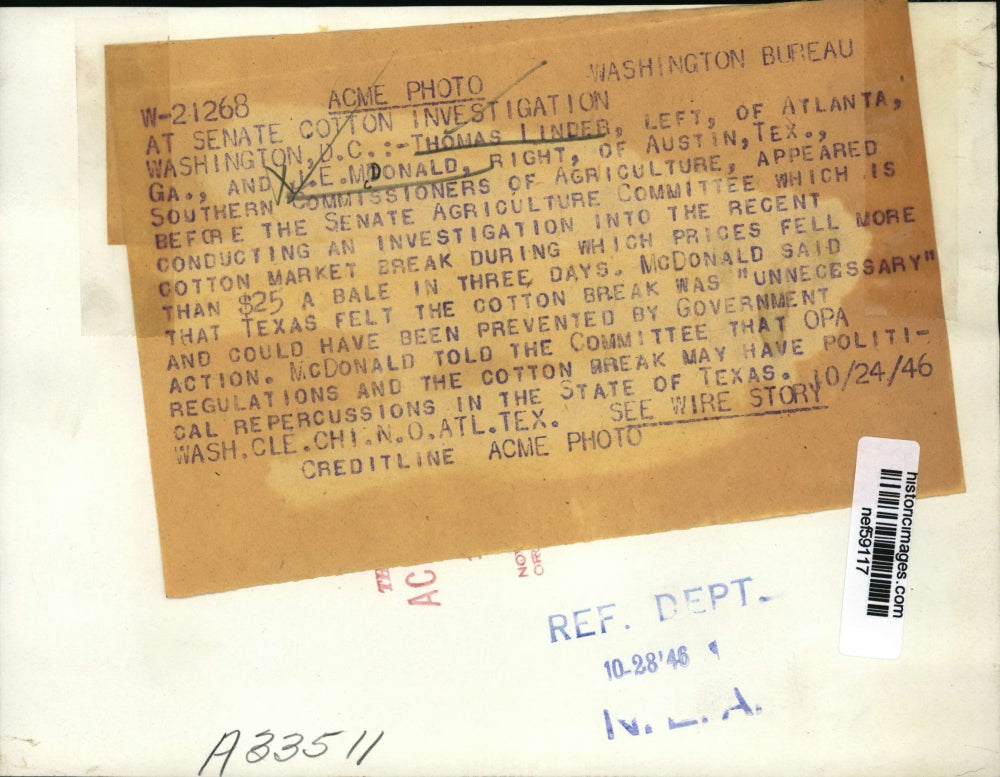 WASHINGTON BUREAU
W-21268 ACME PHOTO
AT SENATE COTTON INVESTIGATION
WASHINGTON, D.C.:-THOMAS LINDER, LEFT, OF ATLANTA,
GA., AND J.E. McDONALD, RIGHT, OF AUSTIN, TEX.,
SOUTHERN COMMISSIONERS OF AGRICULTURE, APPEARED
BEFORE THE SENATE AGRICULTURE COMMITTEE WHICH IS
CONDUCTING AN INVESTIGATION INTO THE RECENT
COTTON MARKET BREAK DURING WHICH PRICES FELL MORE
THAN $25 A BALE IN THREE DAYS. McDONALD SAID
THAT TEXAS FELT THE COTTON BREAK WAS "UNNECESSARY"
AND COULD HAVE BEEN PREVENTED BY GOVERNMENT
ACTION. McDONALD TOLD THE COMMITTEE THAT OPA
REGULATIONS AND THE COTTON BREAK MAY HAVE POLITI-
CAL REPERCUSSIONS IN THE STATE OF TEXAS. 10/24/46
WASH.CLE.CHI.N.O.ATL.TEX. SEE WIRE STORY
CREDITLINE ACME PHOTO
historicimages.com
nef59117
REF. DEPT.
10-28'46
N.E.A.
A33511